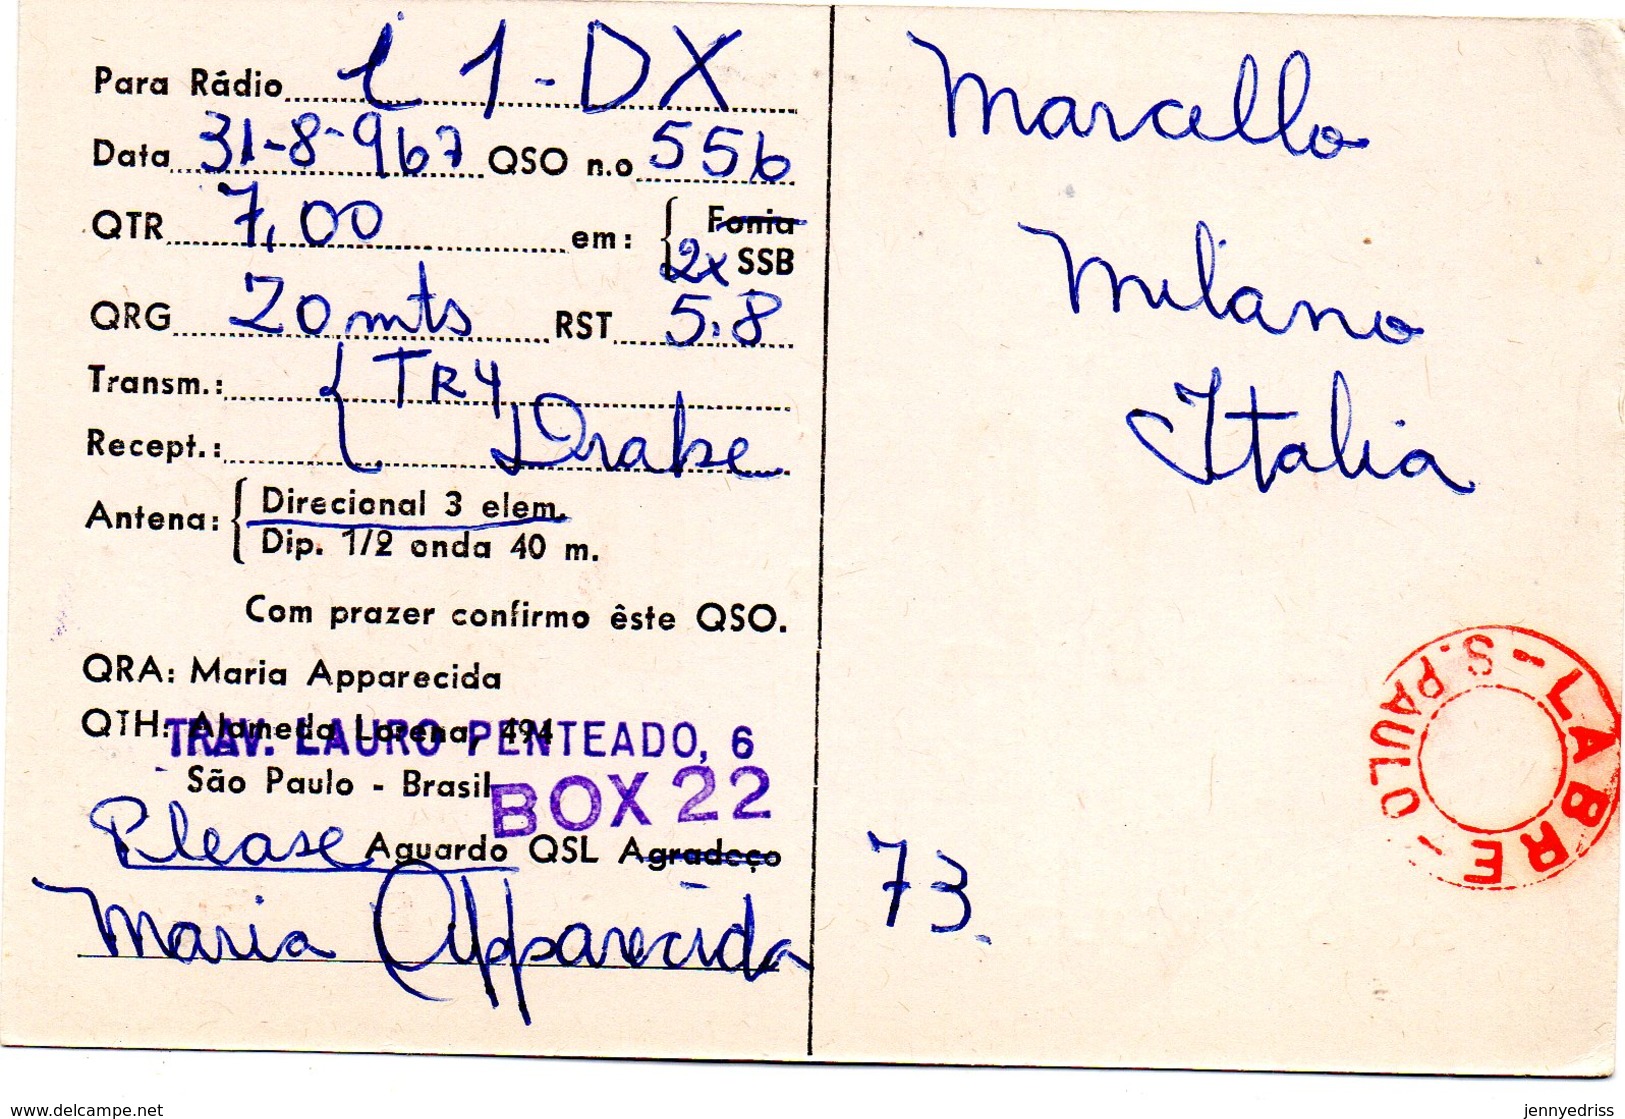 Para Rádio i 1-DX
Data 31-8-967 QSO n.o 556
QTR 7,00 em: { Fonia
2x SSB
QRG 20 mts RST 5.8
Transm.: { TR4
Recept.: Drake
Antena: { Direcional 3 elem.
Dip. 1/2 onda 40 m.
Com prazer confirmo êste QSO.
QRA: Maria Apparecida
QTH: Alameda Lorena, 494
TRAV. LAURO PENTEADO, 6
São Paulo - Brasil
BOX 22
Please Aguardo QSL Agradeço
Maria Apparecida
Marcello
Milano
Italia
LABRE - S. PAULO -
73.
delcampe.net
jennyedriss